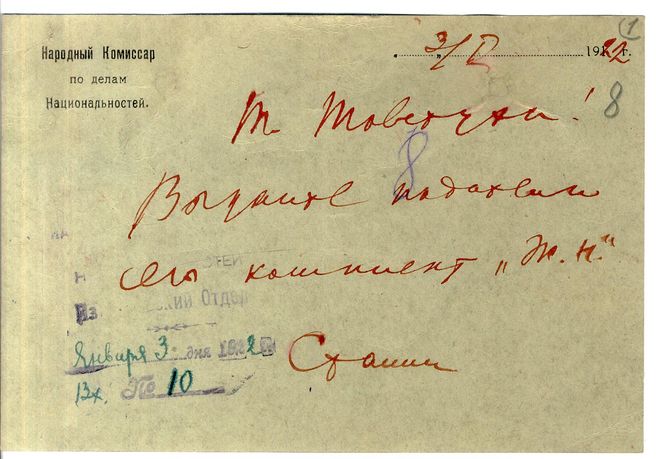 (1)
Народный Комиссар
по делам
Национальностей.
3/I 1922 г.
8
т. Товстухи!
8
Выдайте подателю
сего комплект „Ж. Н."
СТЕЙ
Из ский Отдел
Января 3 дня 1922 г.
Вх. № 10
Сталин